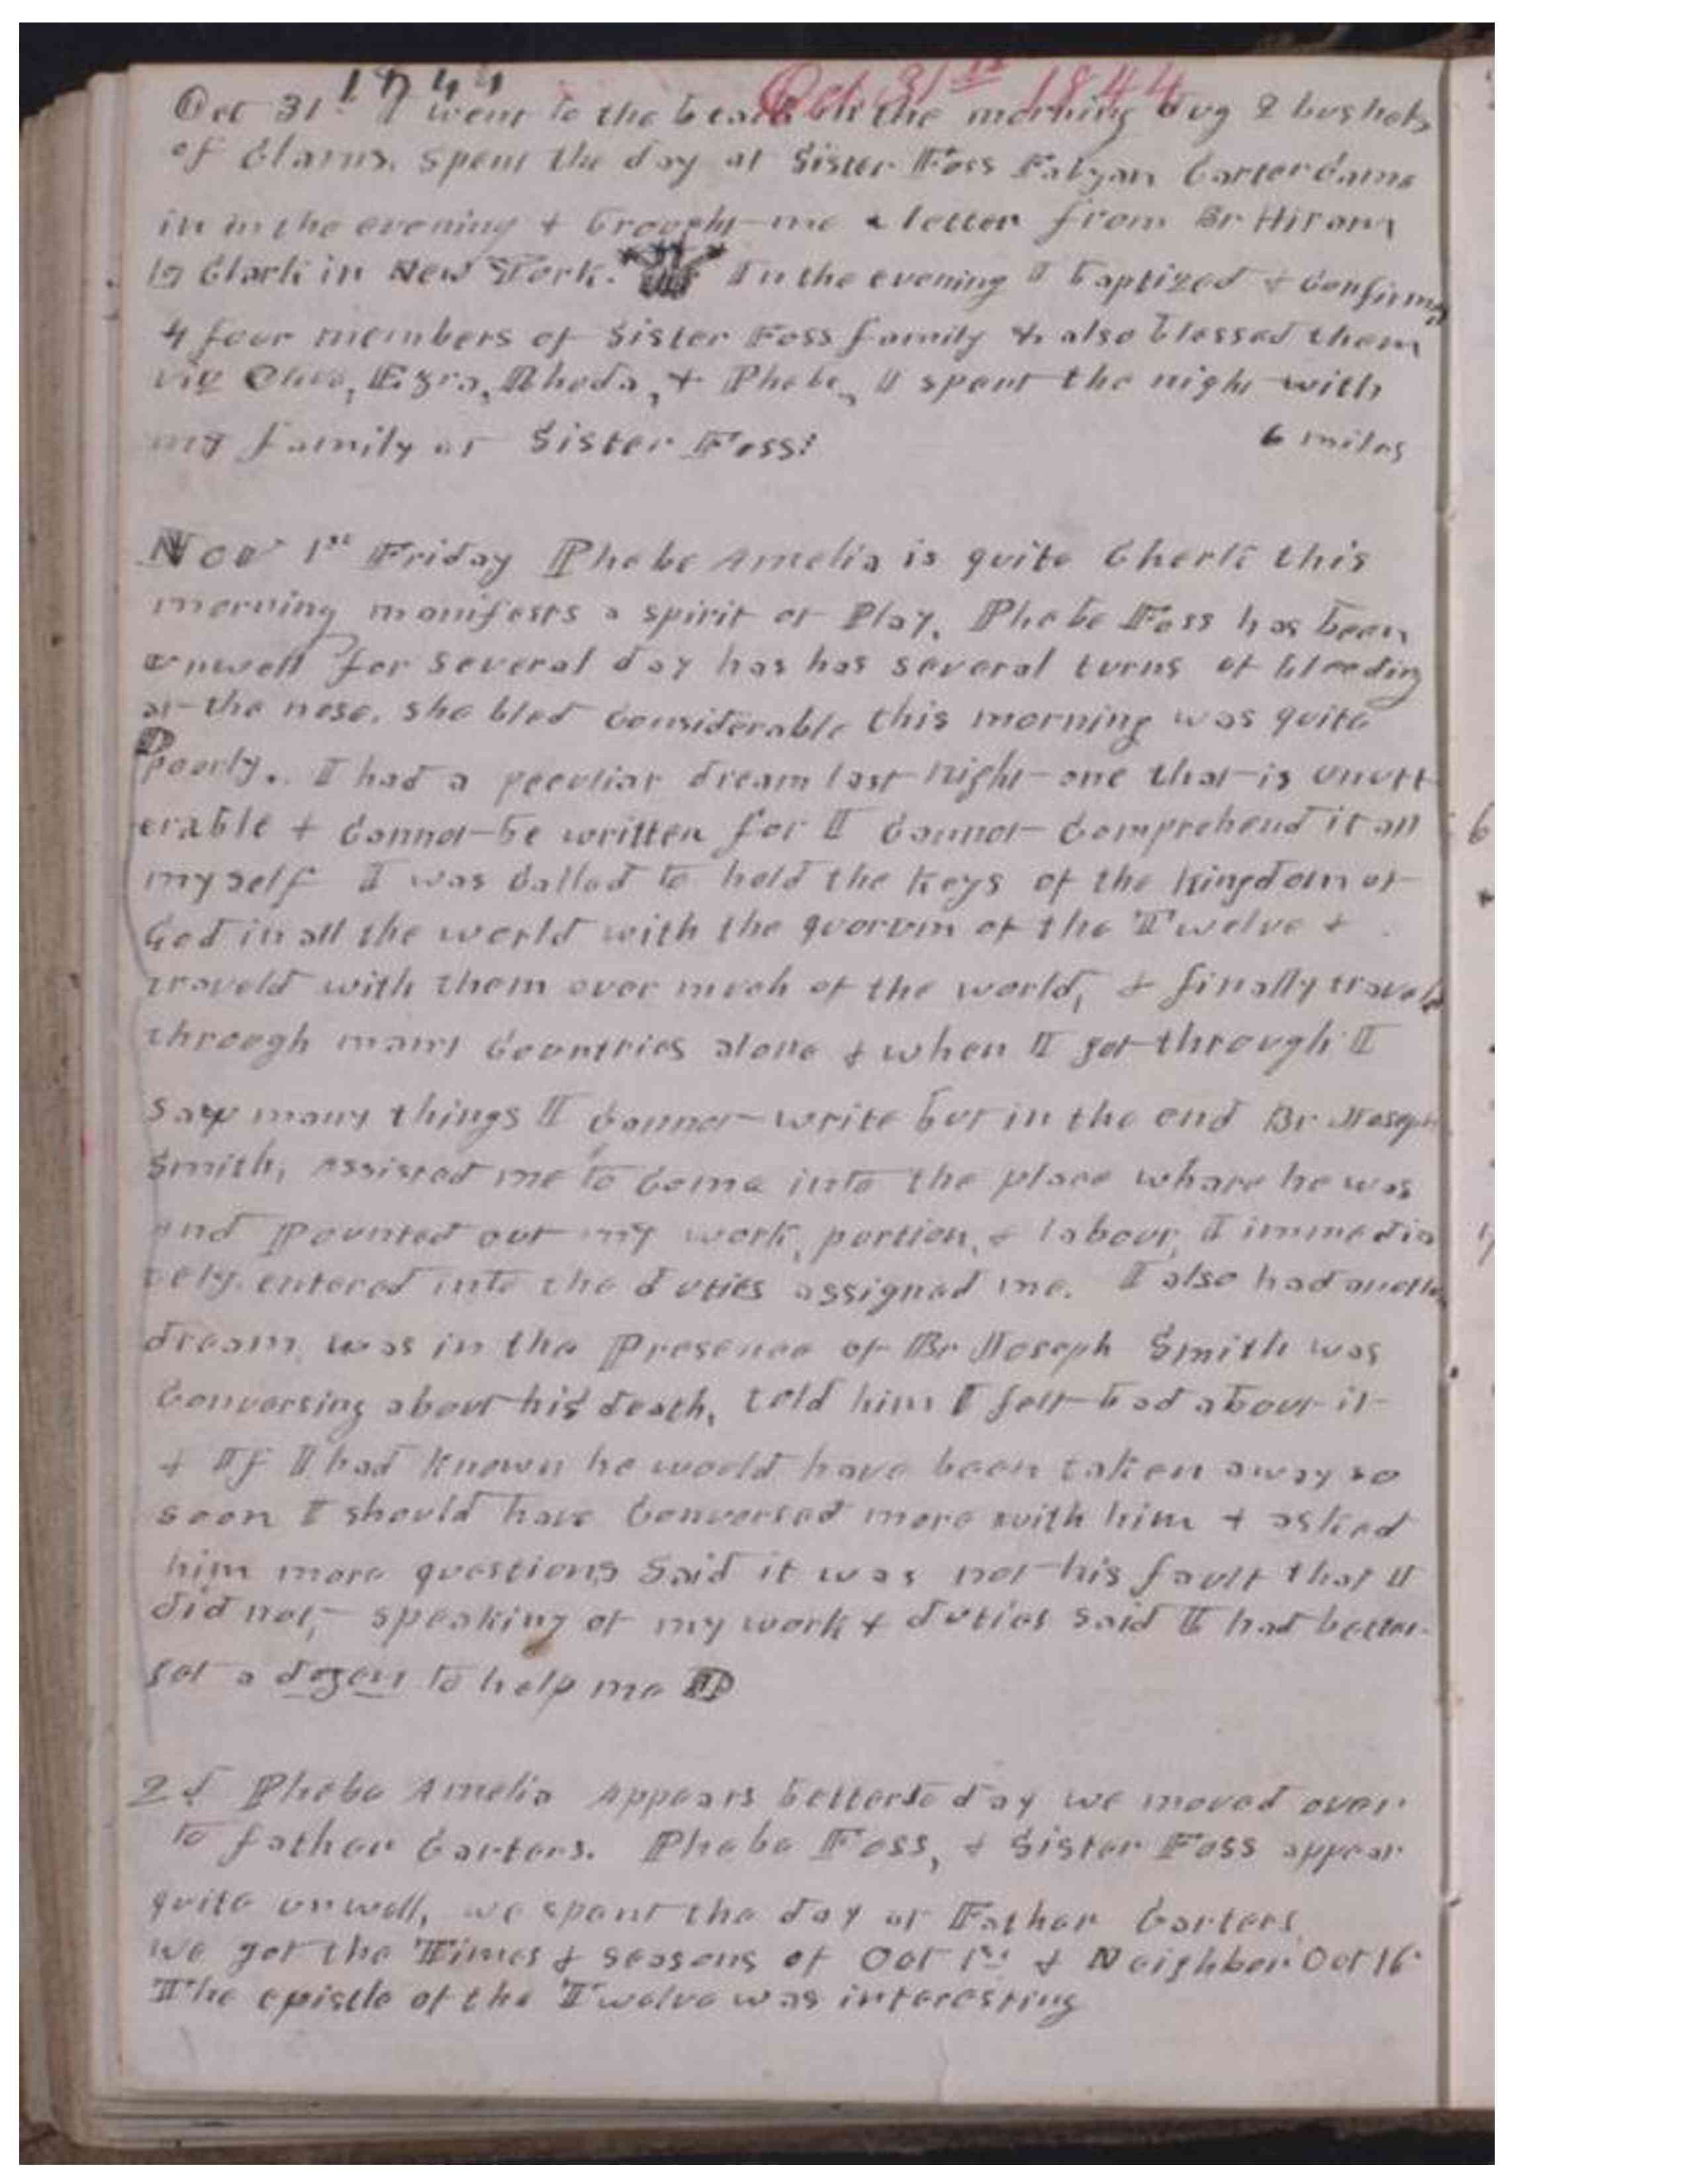 1844 Oct 31st 1844
Oct 31st I went to the beach in the morning dug 2 bushels
of Clams. Spent the day at Sister Foss Fabyan Carter Came
in in the evening & brought me a letter from Br Hiram
Clark in New York. In the evening I baptized & Confirmed
4 four members of Sister Foss family & also blessed them
viz Olive, Ezra, Rhoda, & Phebe, I spent the night with
my family at Sister Foss: 6 miles
Nov 1st Friday Phebe Amelia is quite Cherk this
morning manifests a spirit of Play. Phebe Foss has been
unwell for several day has has several turns of bleeding
at the nose. she bled Considerable this morning was quite
Poorly. I had a peculiar dream last night one that is unutt
erable & Cannot be written for I Cannot Comprehend it all
myself I was Called to hold the Keys of the kingdom of
God in all the world with the quorum of the Twelve &
traveld with them over much of the world, & finally traveld
through many Countries alone & when I got through I
saw many things I Cannot write but in the end Br Joseph
Smith, assisted me to Come into the place whare he was
and pointed out my work, portion, & labour, I immedia
tely. entered into the duties assigned me. I also had another
dream, was in the Presence of Br Joseph Smith was
Conversing about his death, told him I felt bad about it
& If I had known he would have been taken away so
soon I should have Conversed more with him & asked
him more questions Said it was not his fault that I
did not, speaking of my work & duties said I had better
get a dozen to help me
2d Phebe Amelia appears better to day we moved over
to father Carters. Phebe Foss, & Sister Foss appear
quite unwell, we spent the day at Father Carters
we got the Times & Seasons of Oct 1st & Neighbor Oct 16
The epistle of the Twelve was interesting